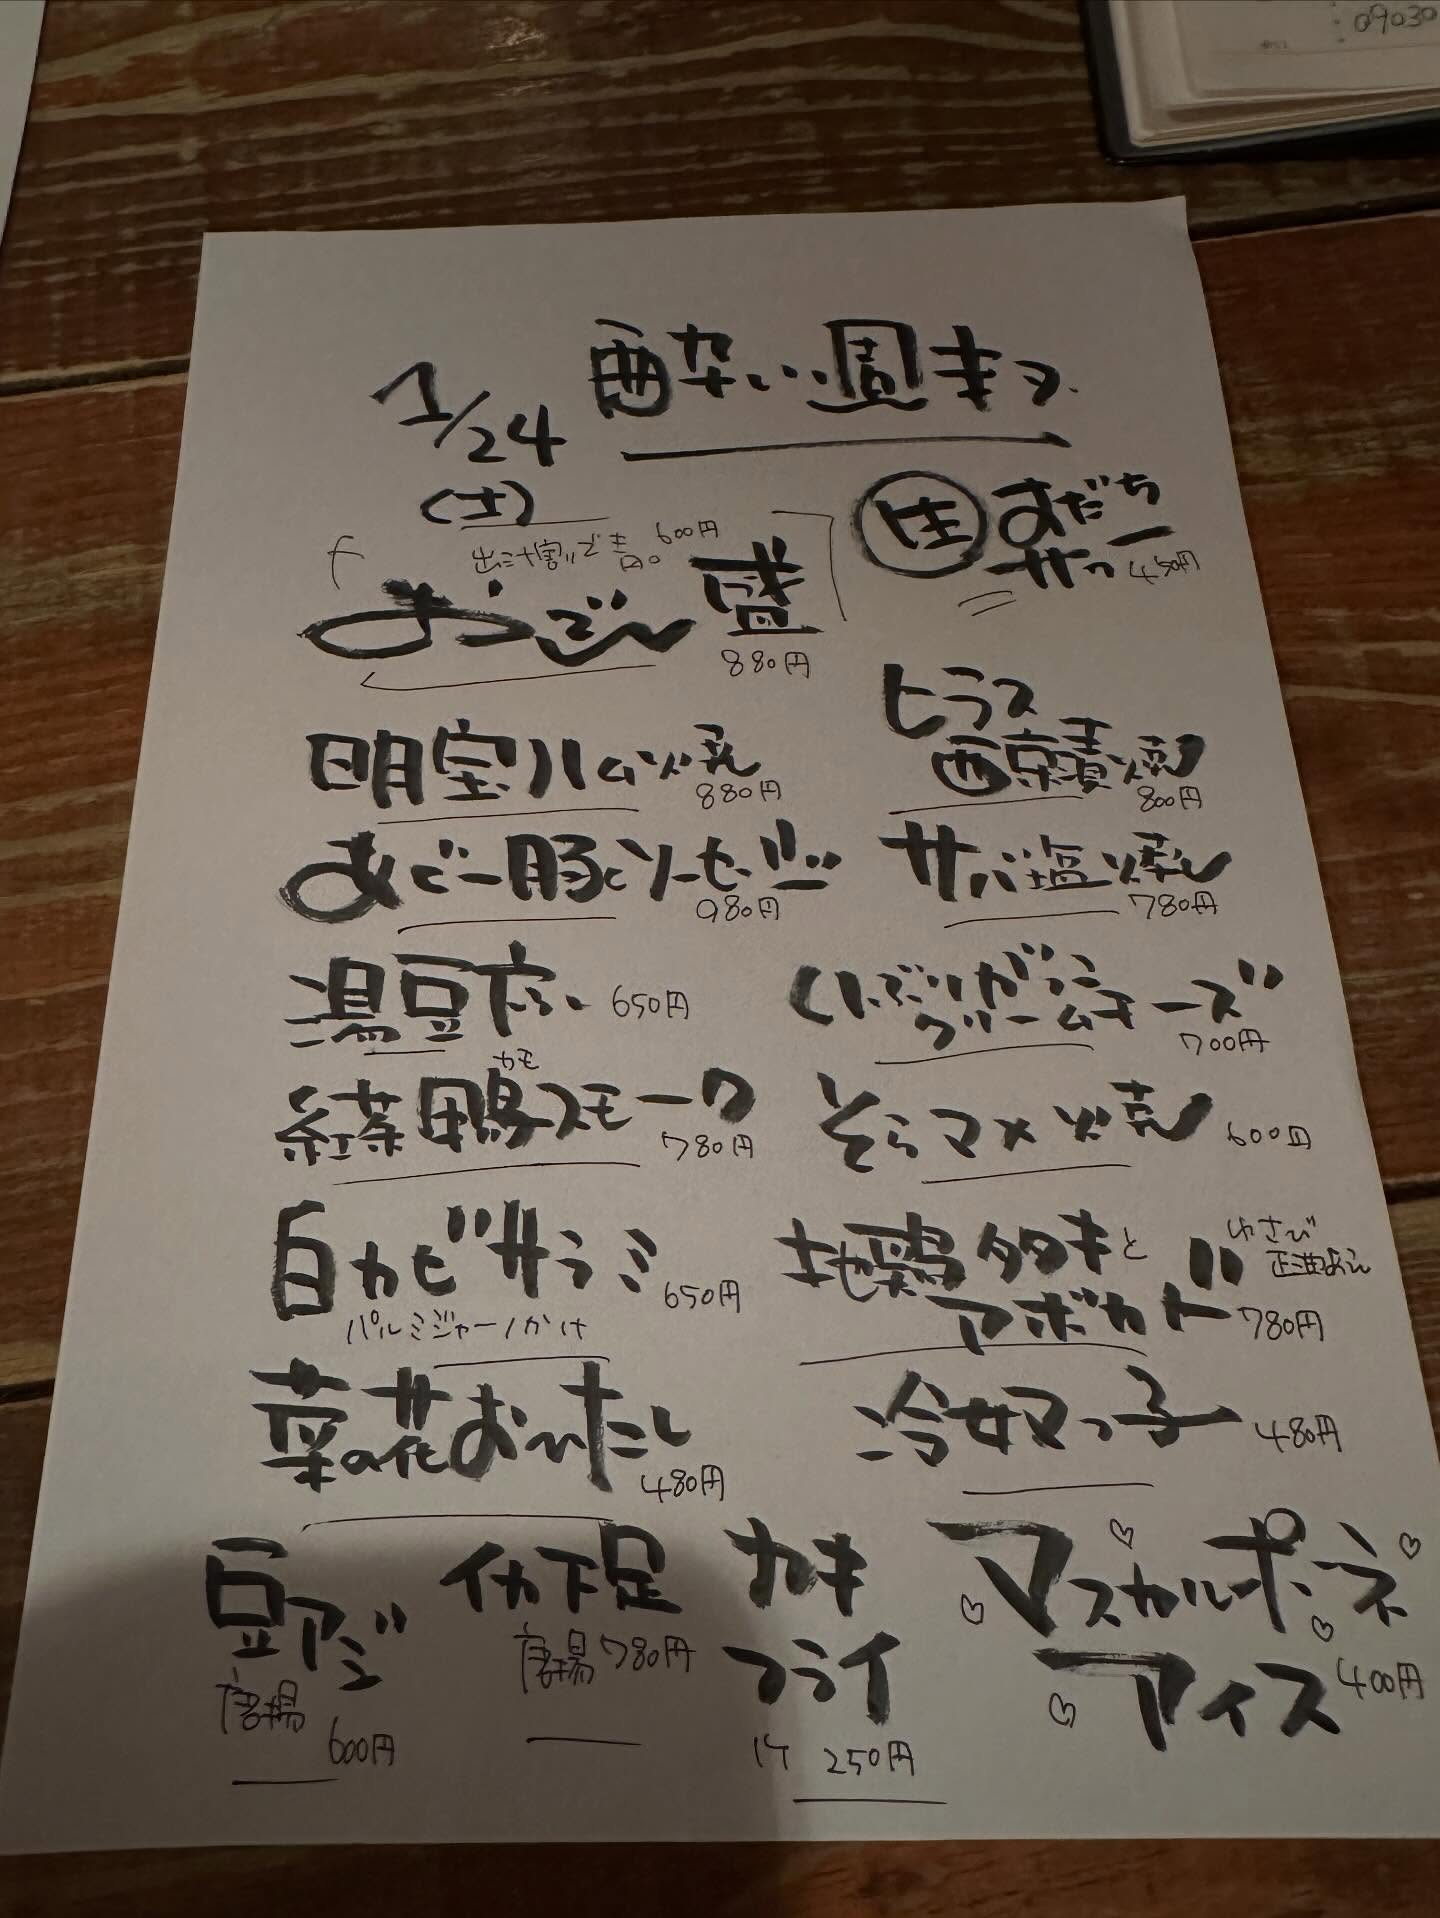 09030
1/24
(土)
酔い園まつ
出汁割りできます。600円
おでん盛
880円
生 すだち
サワー
450円
明宝ハム焼
880円
ヒラス
西京漬焼
800円
あぐー豚ソーセージ
980円
サバ塩焼
780円
湯豆腐 650円
いぶりがっこ
クリームチーズ
700円
紅茶鴨スモーク
カモ
780円
そらマメ焼 600円
白カビサラミ
650円
パルミジャーノかけ
地鶏タタキと
アボカド
わさび
正油よう
780円
菜の花おひたし
480円
冷奴っ子 480円
豆アジ
唐揚
600円
イカ下足
唐揚 780円
カキ
フライ
1ケ 250円
マスカルポーネ
アイス
400円